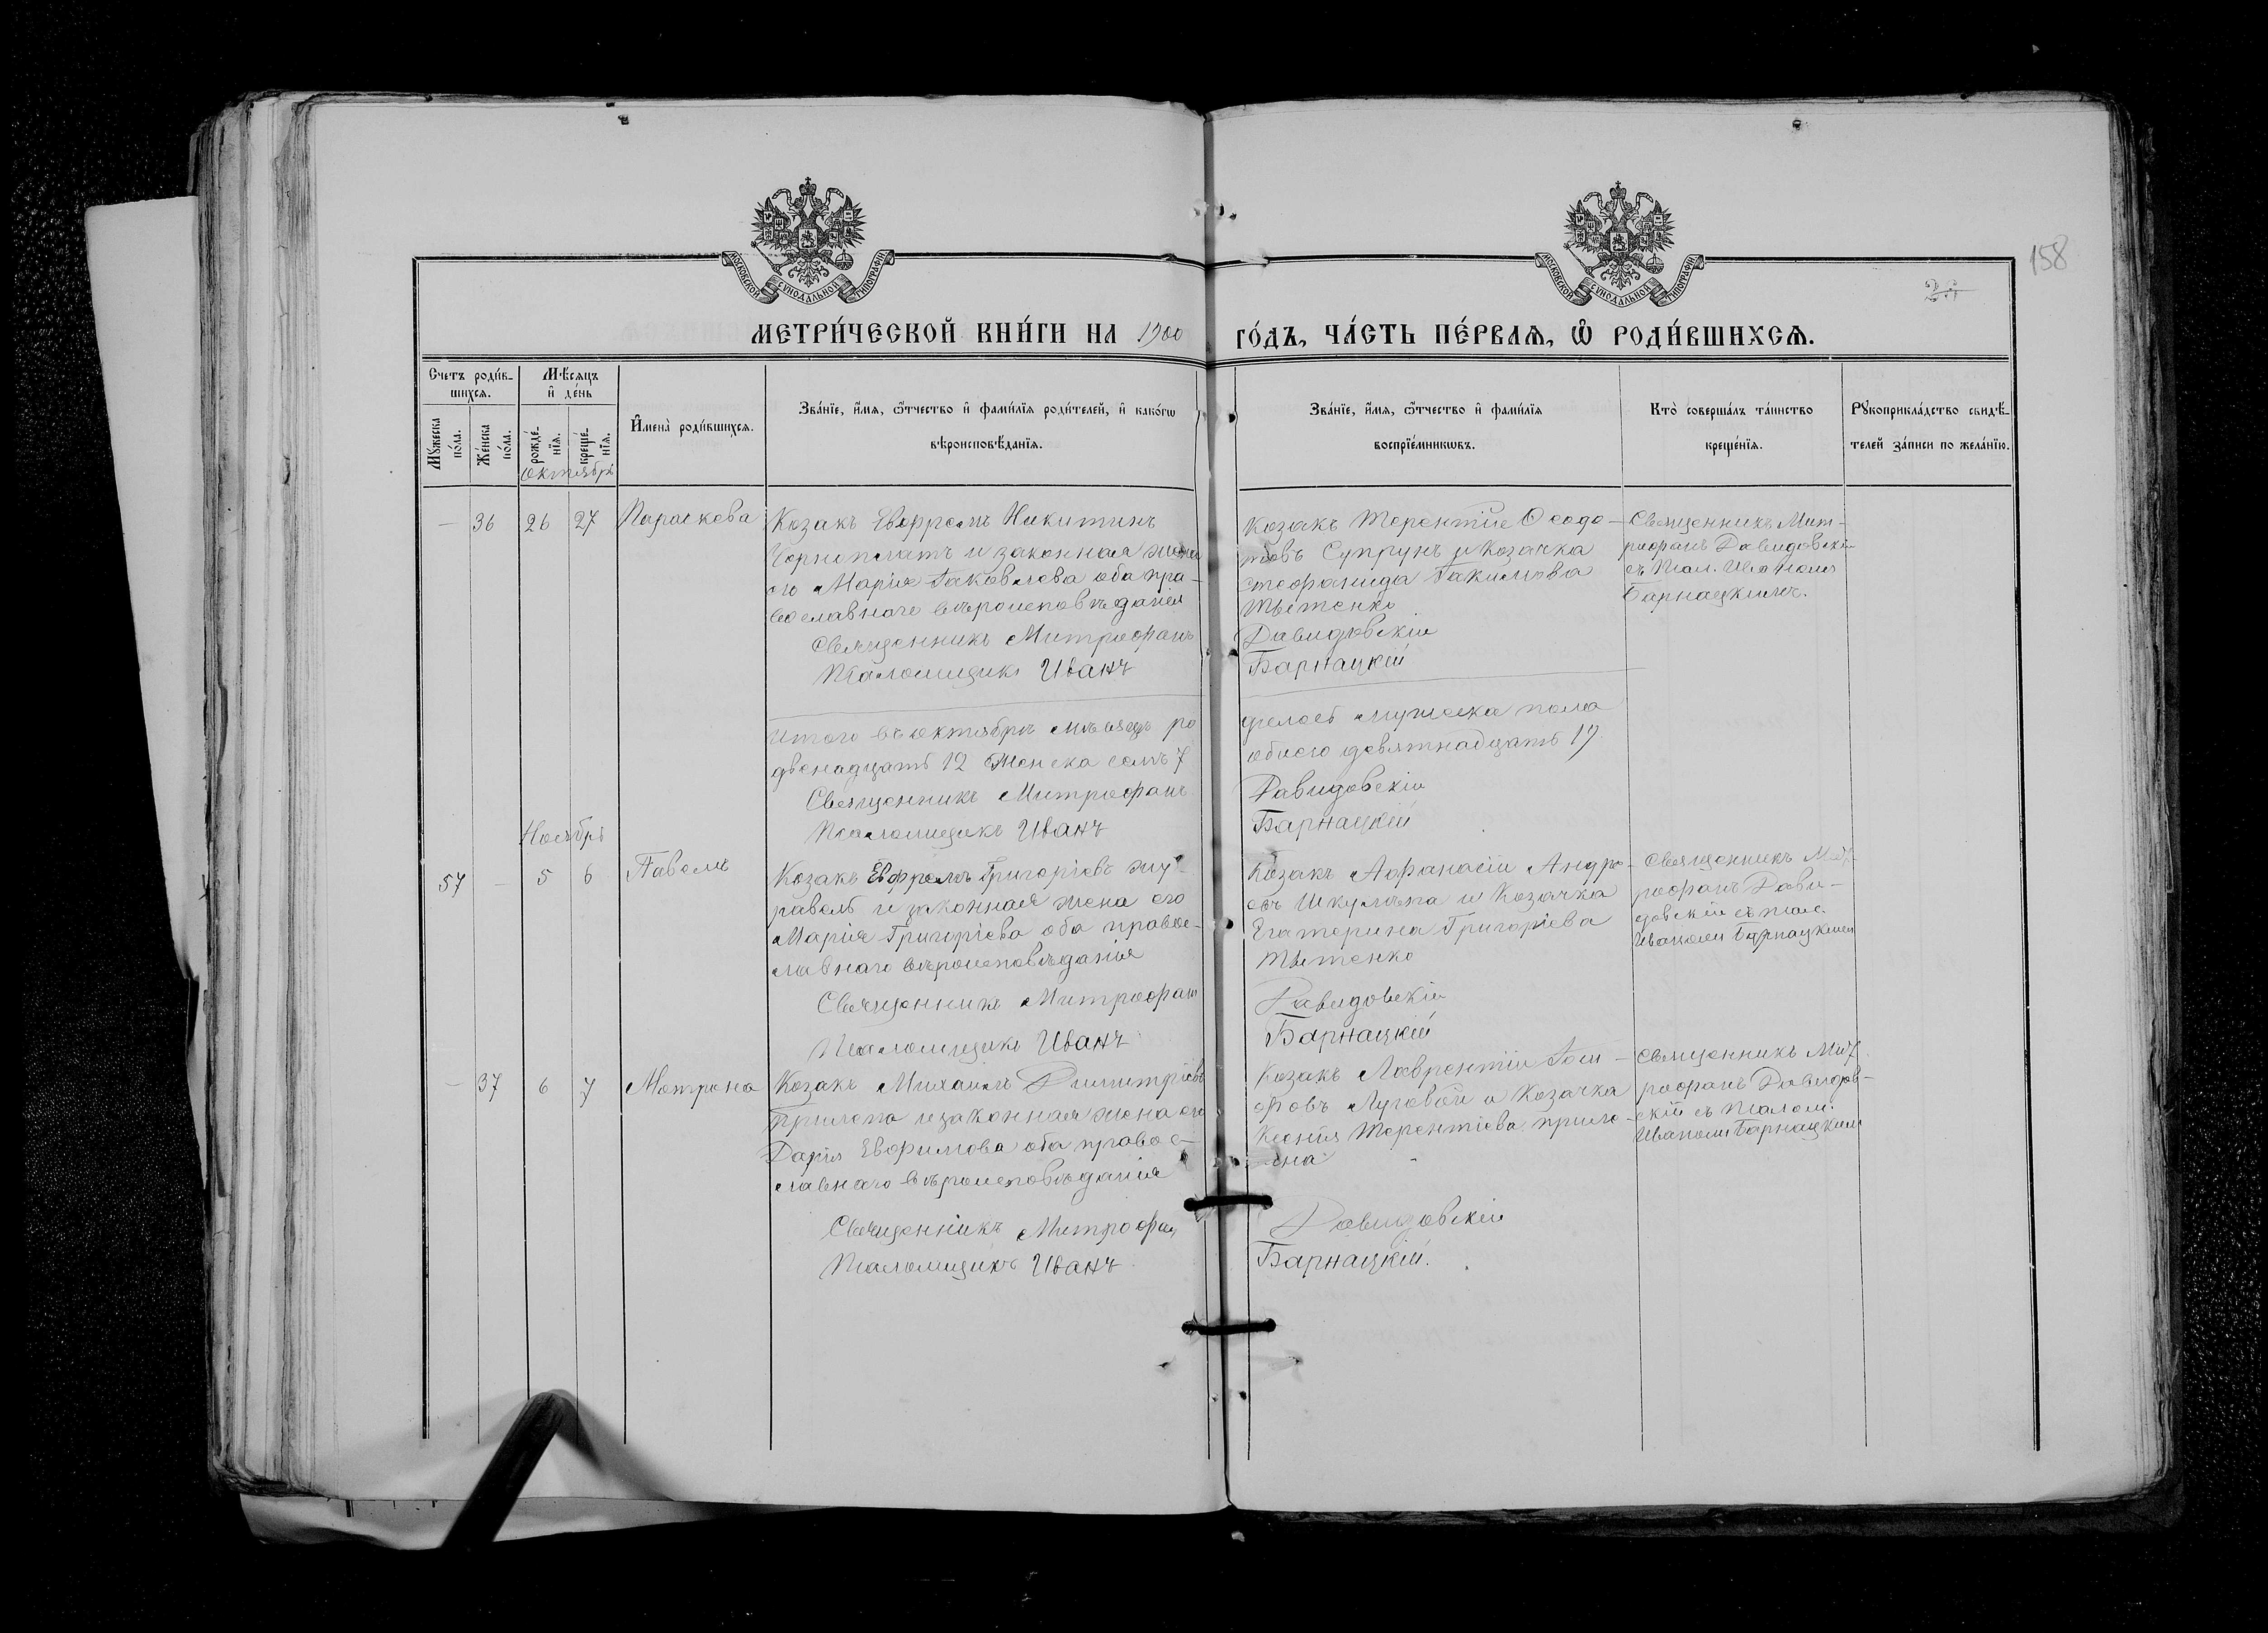 158
МОСКОВСКОЙ СУНОДАЛЬНОЙ ТИПОГРАФІИ
МОСКОВСКОЙ СУНОДАЛЬНОЙ ТИПОГРАФІИ
МЕТРИ́ЧЕСКОЙ КНИ́ГИ НА 1900 ГО́ДЪ, ЧА́СТЬ ПЕ́РВАѦ, Ѡ҆ РОДИ́ВШИХСѦ.
Счетъ роди́в-
шихсѧ.
Мꙋ́жеска по́ла.
Же́нска по́ла.
Мѣ́сѧцъ
и҆ де́нь
рожде́-нїѧ.
креще́-нїѧ.
И҆мена̀ роди́вшихсѧ.
Зва́нїе, и҆́мѧ, ѻ҆́тчество и҆ фами́лїѧ роди́телей, и҆ како́гѡ
вѣроисповѣ́данїѧ.
Зва́нїе, и҆́мѧ, ѻ҆́тчество и҆ фами́лїѧ
воспрїе́мникѡвъ.
Кто̀ соверша́лъ та́инство
креще́нїѧ.
Рꙋкоприкла́дство свидѣ́-
телей за́писи по жела́нїю.
Октябрь
— 36 26 27 Параскева
Козакъ Евфремъ Никитинъ
и законная жена
его Марія Іаковлева оба пра-
вославнаго вѣроисповѣданія
Священникъ Митрофанъ
Псаломщикъ Иванъ
Козакъ Терентій Ѳеодо-
товъ Супрунъ и Козачка
Стефанида Іакимова
Тытенко
Давидовскій
Барнацкій
Священникъ Мит-
рофанъ Давидовскій
съ Псал. Иваномъ
Барнацкимъ.
Итого въ октябрѣ мѣсяцѣ ро
двенадцать 12 Женска семь 7
Священникъ Митрофанъ
Псаломщикъ Иванъ
дилось мужеска пола
обоего девятнадцать 19.
Давидовскій
Барнацкій
Ноябрь
57 — 5 6 Павелъ
Козакъ Евфремъ Григоріевъ Жу-
равель и законная жена его
Марія Григоріева оба правос-
лавнаго вѣроисповѣданія
Священникъ Митрофанъ
Псаломщикъ Иванъ
Козакъ Аѳанасій Андре-
евъ Шкулѣпа и Козачка
Екатерина Григоріева
Тытенко
Давидовскій
Барнацкій
Священникъ Мит-
рофанъ Дави-
довскій съ псал.
Иваномъ Барнацкимъ
— 37 6 7 Матрона
Козакъ Михаилъ Димитріевъ
Прилепа и законная жена его
Дарія Евфимова оба правос-
лавнаго вѣроисповѣданія
Священникъ Митрофан
Псаломщикъ Иванъ
Козакъ Лаврентій Іоси-
фовъ Луговой и Козачка
Ксенія Терентіева
Давидовскій
Барнацкій.
Священникъ Мит
рофанъ Давидов-
скій съ Псалом.
Иваномъ Барнацкимъ